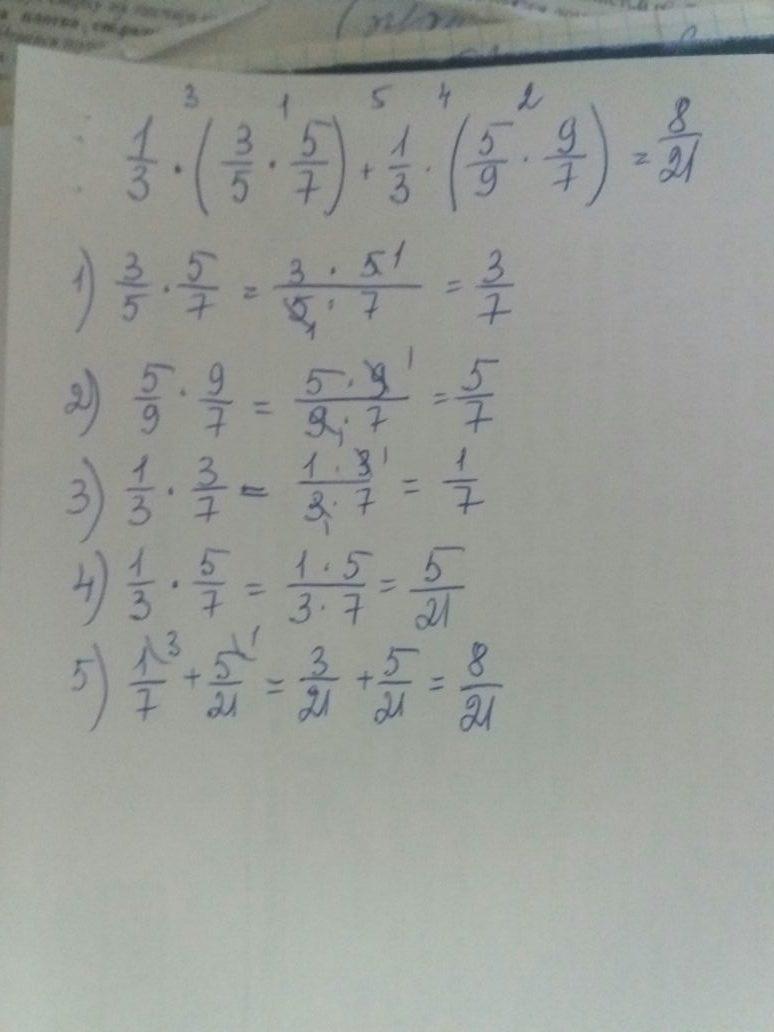 3 1 5 4 2
1/3 · (3/5 · 5/7) + 1/3 · (5/9 · 9/7) = 8/21
1) 3/5 · 5/7 = 3 · 5¹/5₁ · 7 = 3/7
2) 5/9 · 9/7 = 5 · 9¹/9₁ · 7 = 5/7
3) 1/3 · 3/7 = 1 · 3¹/3₁ · 7 = 1/7
4) 1/3 · 5/7 = 1 · 5/3 · 7 = 5/21
5) 1³/7 + 5¹/21 = 3/21 + 5/21 = 8/21